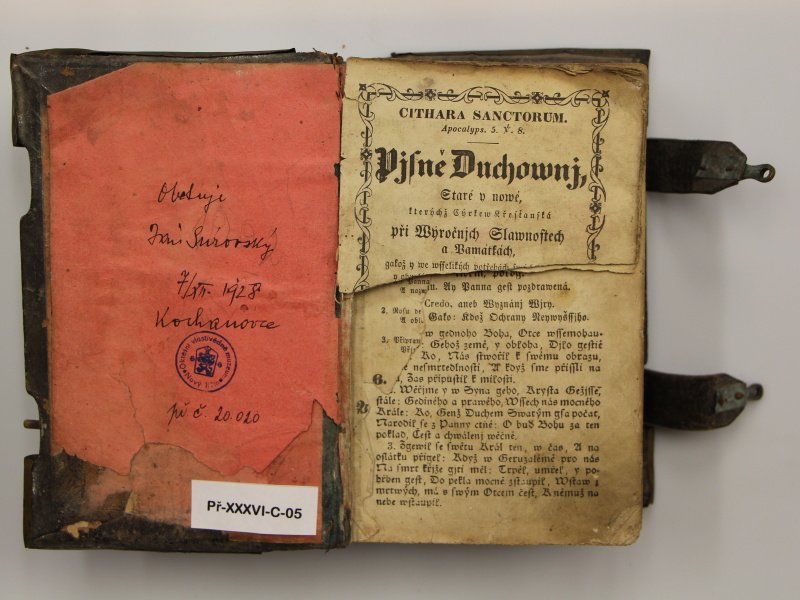 Obětuje
7/XII. 1928
Kochanovce
Okresní vlastivědné muzeum
Nový Jičín
př č. 20.020
Př-XXXVI-C-05
CITHARA SANCTORUM.
Apocalyps. 5. V. 8.
Pjſně Duchownj,
Staré y nowé,
kterýchž Cýrkew Křeſťanſká
při Wýročnjch Slawnoſtech
a Památkách,
gakož y we wſſelikých potřebách
m. Ay Panna geſt pozdrawená.
Credo, aneb Wyznánj Wjry.
Gako: Kdož Ochrany Neywyšſſjho.
w gednoho Boha, Otce wſſemohau-
Gehož země, y obloha, Djlo geſtiť
Ko, Nás ſtwořil k ſwému obrazu,
neſmrtedlnoſti, A když ſme přiſſli na
, Zas připuſtil k miloſti.
6.
Wěřjme y w Syna geho, Kryſta Gežjſſe,
ſtále: Gediného a prawého, Wſſech nás mocného
Krále: Ko, Genž Duchem Swatým gſa počat,
Narodil ſe z Panny ctné: O buď Bohu za ten
poklad, Čeſt a chwálenj wěčné.
3. Zgewil ſe ſwětu Král ten, w čas, A na
oſlátku přigel: Když w Geruzalémě pro nás
Na ſmrt křjže gjti měl: Trpěl, umřel, y po-
hřben geſt, Do pekla mocně zſtaupil, Wſtaw z
mrtwých, má s ſwým Otcem čeſt, K němuž na
nebe wſtaupil.